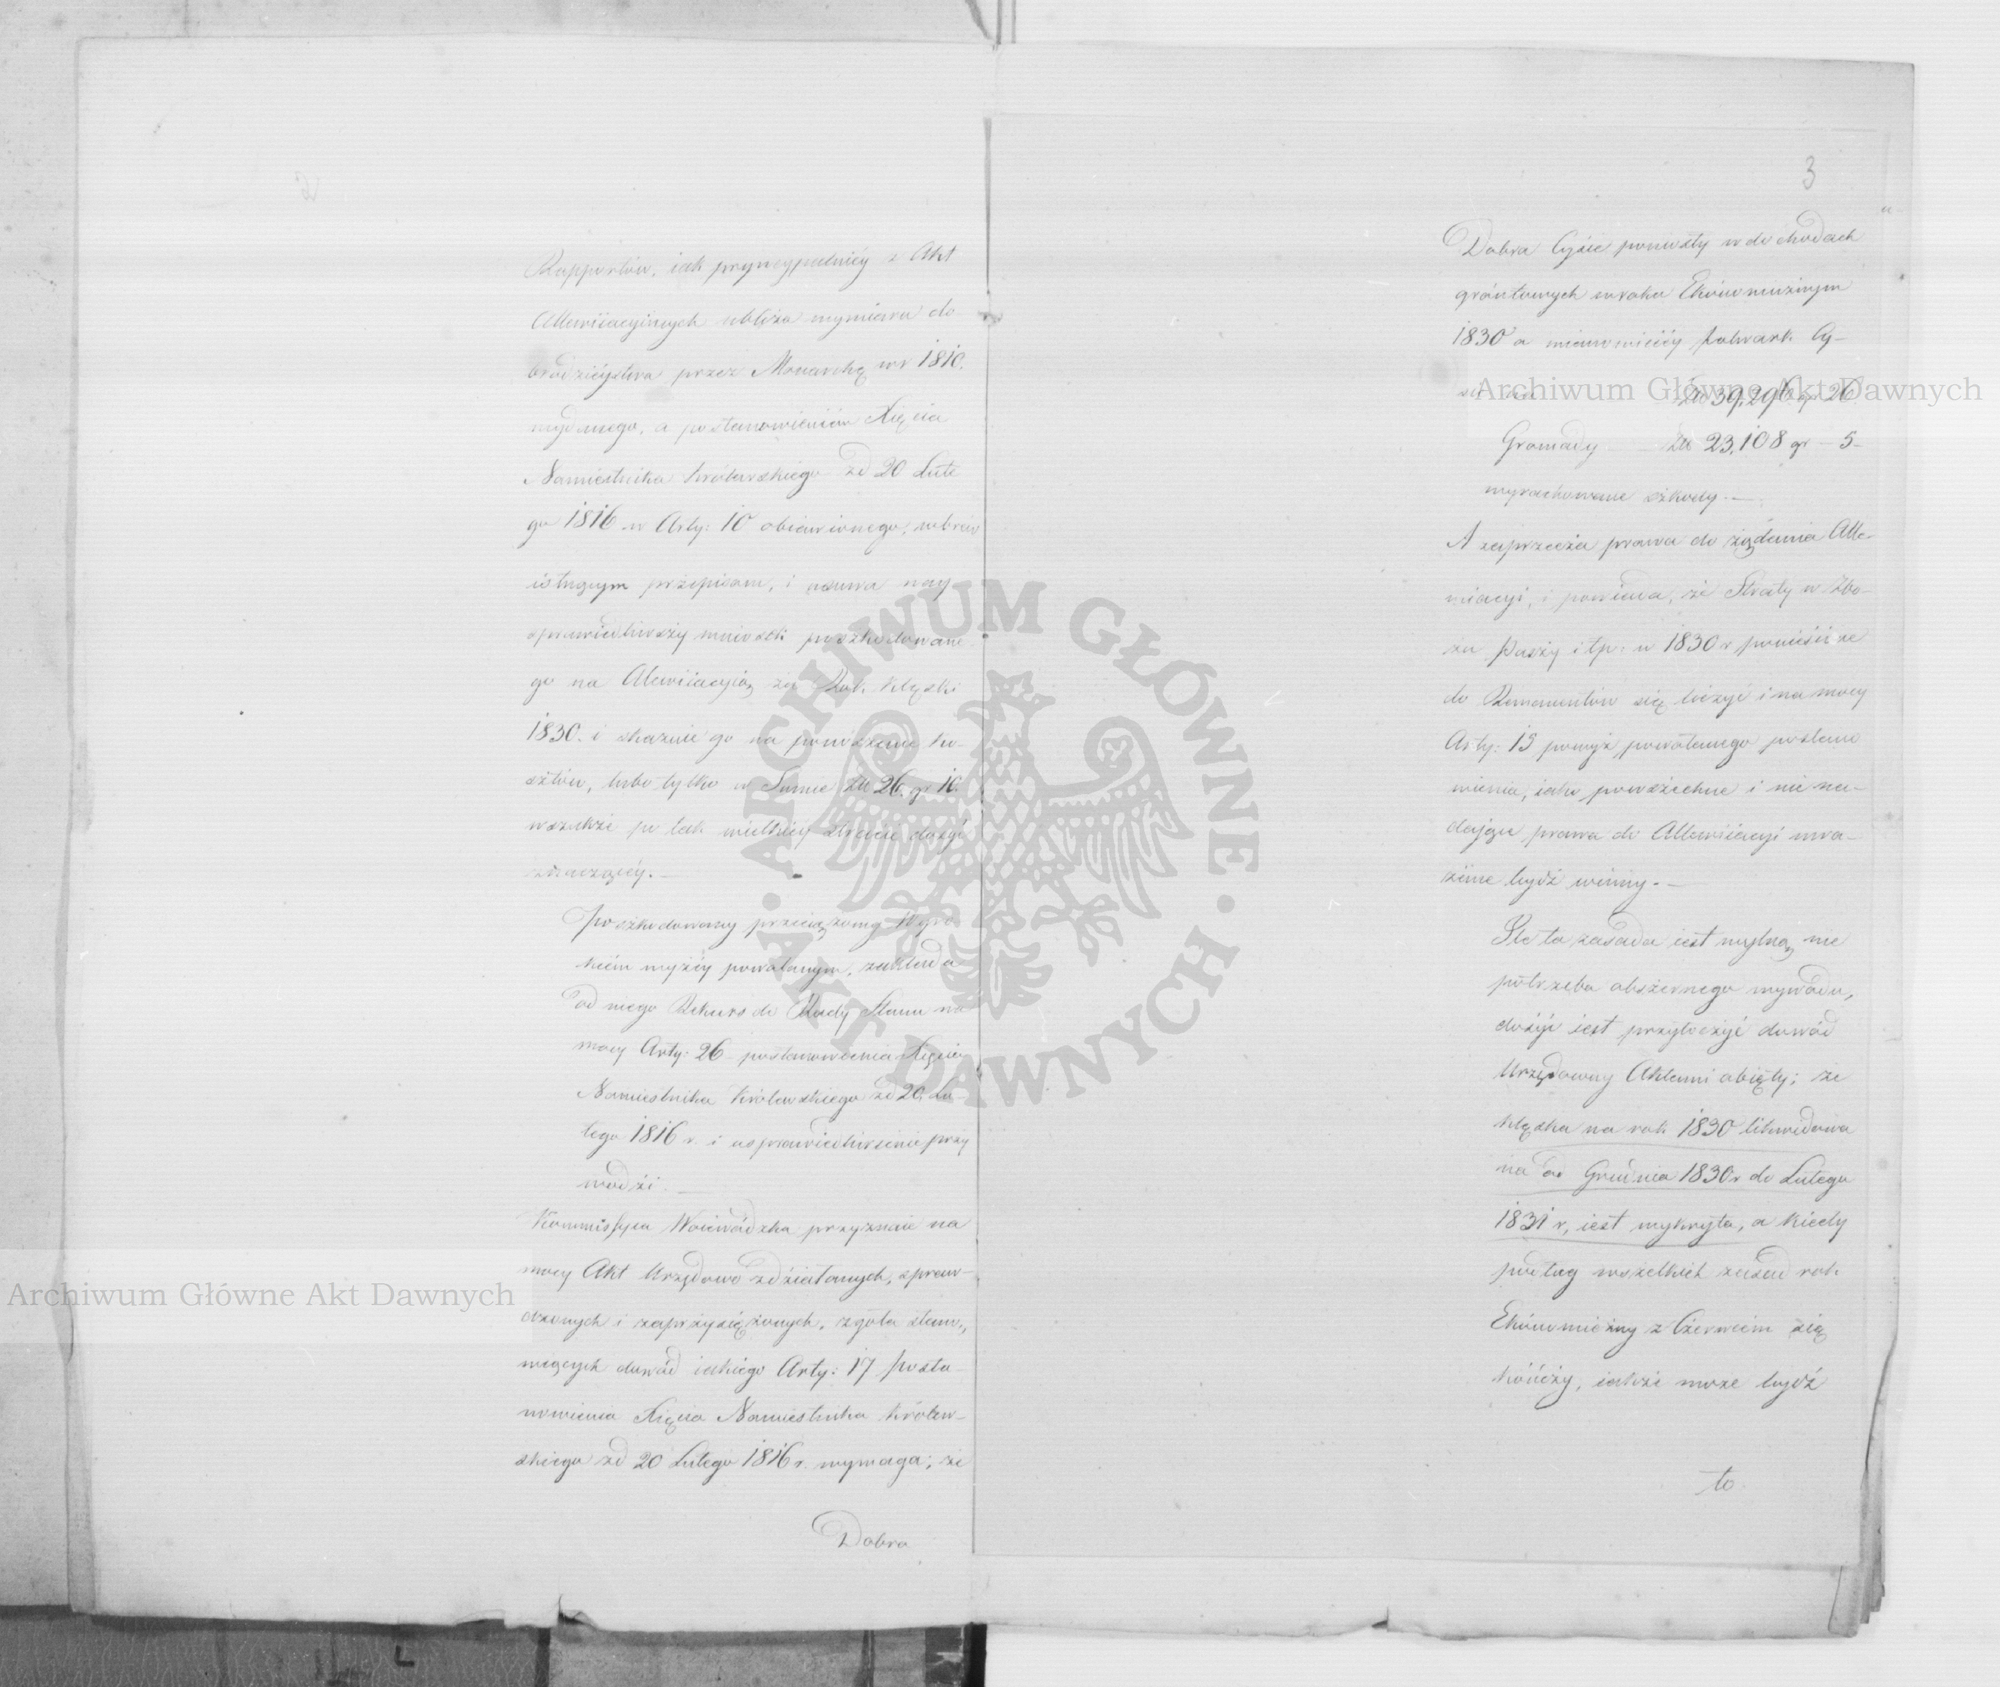 Rapportów, iak pryncypalniéy z Akt
Allewiacyinych ubliża wymiaru do
brodzieystwa przez Monarchę w r 1810.
wydanego, a postanowieniem Xięcia
Namiestnika Królewskiego zd 20 Lute
go 1816 w Arty: 10 obiawionego, wbrew
istnącym przepisom, i usuwa nay
sprawiedliwszy wniosek poszkodowane
go na Alewiacyią za Rok klęski
1830. i skazuie go na poniesienie ko-
sztów, lubo tylko w Summie Zł 26. gr 10.
wszakże po tak wielkiey stracie dosyć
znaczącéy. —
Poszkodowany przeciążony Wyro-
kiem wyżéy powołanym, zakłada
od niego Rekurs do Rady Stanu na
mocy Arty: 26 postanowienia Xięcia
Namiestnika Królewskiego zd 20 Lu-
tego 1816 r. i usprawiedliwienie przy
wodzi. —
Kommissyia Woiewódzka przyznaie na
mocy Akt Urzędowo zdziałanych, spraw-
dzonych i zaprzysiężonych, zgoła stano-
wiących dowód iakiego Arty: 17 Posta-
nowienia Xięcia Namiestnika Królew-
skiego zd 20 Lutego 1816 r. wymaga; że
Dobra
3
Dobra Cyśie poniosły w dochodach
gróntowych w roku Ekonomicznym
1830 a mianowiciéy folwark Cy-
Zł 39,296 gr 26.
Gromady Zł 23,108 gr — 5 —
wyrachowane szkody. —
A zaprzecza prawa do żądania Alle-
wiacyi, i powiada, że Straty w Zbo-
żu Paszy itp: w 1830 r poniesione
do Remanentów się liczyć i na mocy
Arty: 15 powyż powołanego postano
wienia, iako powszechne i nie na-
daiące prawa do Allewiacyi uwa-
żane bydź winny. —
Że ta zasada iest mylną, nie
potrzeba obszernego wywodu,
dosyć iest przytoczyć dowód
Urzędowy Aktami obięty; że
klęska na rok 1830 likwidowa
na od Grudnia 1830 r do Lutego
1831 r, iest wykryta, a kiedy
podług wszelkich zasad rok
Ekonomiczny z Czerwcem się
kończy, iakże może bydź
to
Archiwum Główne Akt Dawnych
Archiwum Główne Akt Dawnych
ARCHIWUM GŁÓWNE · AKT DAWNYCH ·